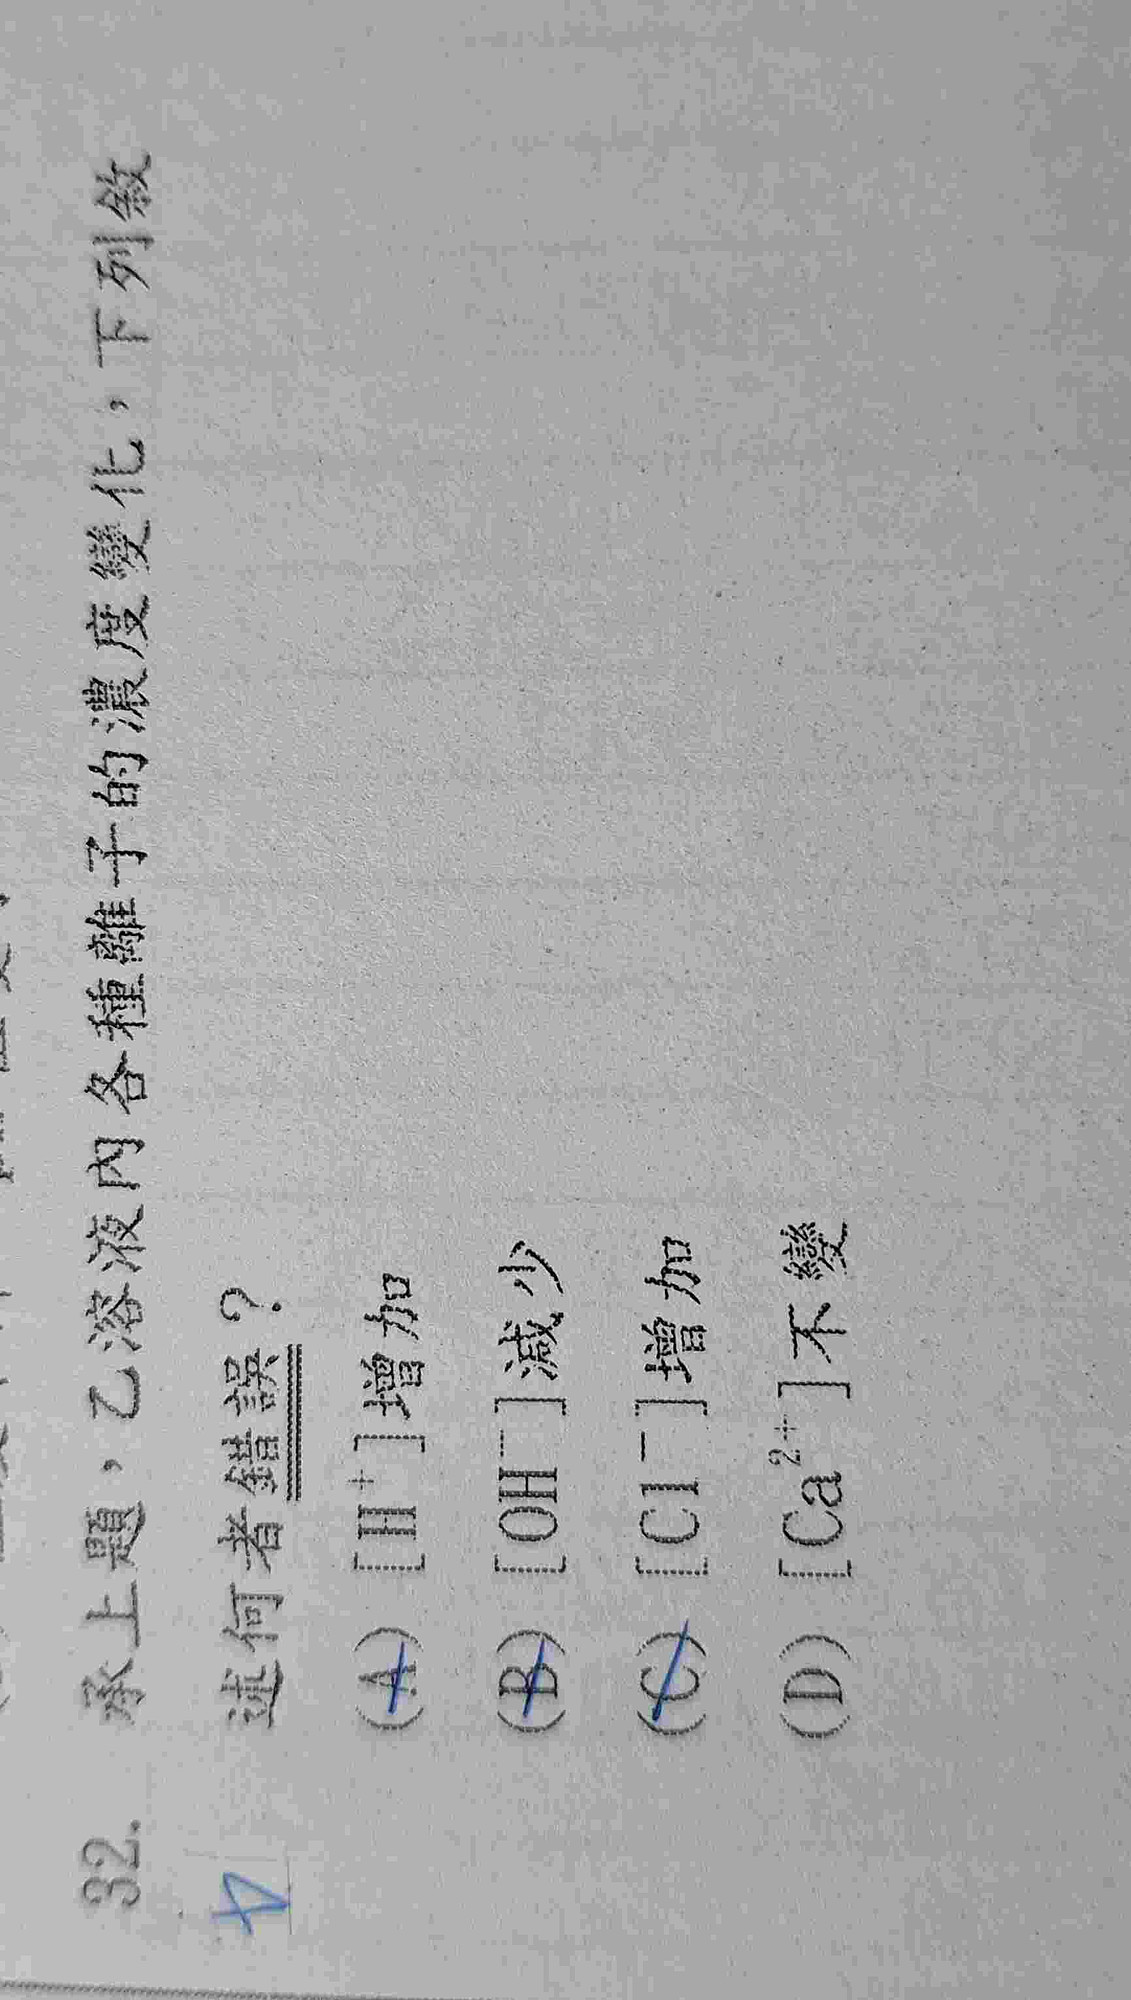 32. 承上題，乙溶液內各種離子的濃度變化，下列敘
述何者錯誤？
(A) [H⁺]增加
(B) [OH⁻]減少
(C) [Cl⁻]增加
(D) [Ca²⁺]不變